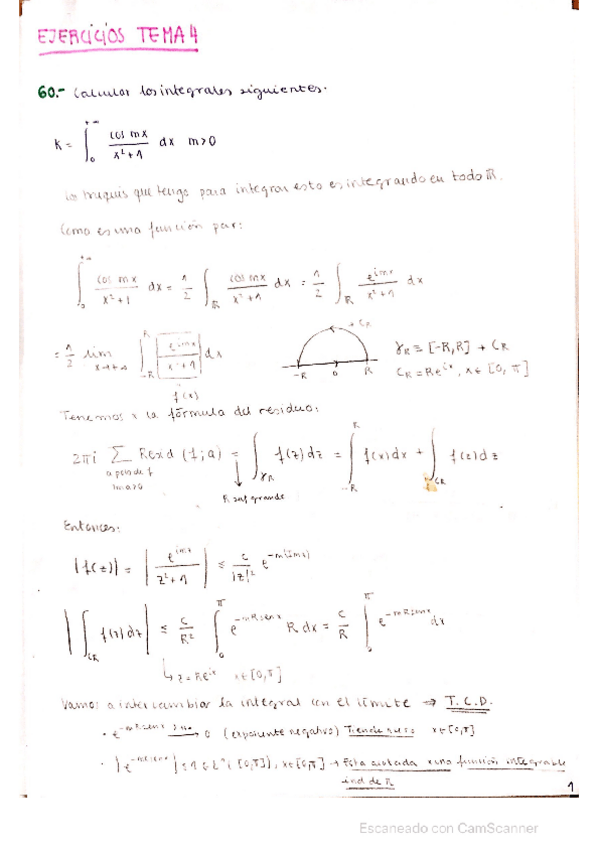 EJERCICIOS TEMA 4
60.- Calcular las integrales siguientes.
K = ∫_0^{+∞} cos mx / (x²+1) dx m>0
que tengo para integrar esto es integrando en todo ℝ.
Como es una función par:
∫_0^{+∞} cos mx / (x²+1) dx = 1/2 ∫_ℝ cos mx / (x²+1) dx = 1/2 ∫_ℝ e^{imx} / (x²+1) dx
= 1/2 lim ∫_{-R}^{R} e^{imx} / (x²+1) dx
f(x)
+ C_R
-R 0 R
γ_R ≡ [-R,R] + C_R
C_R = Re^{ix}, x∈[0,π]
Tenemos x la fórmula del residuo:
2πi Σ Resd (f;a) = ∫_{γ_R} f(z)dz = ∫_{-R}^{R} f(x)dx + ∫_{C_R} f(z)dz
a polo de f
Im a>0
R suf grande
Entonces:
|f(z)| = | e^{imz} / (z²+1) | ≤ c/|z|² e^{-m(Im z)}
| ∫_{C_R} f(z)dz | ≤ c/R² ∫_0^π e^{-mR sen x} R dx = c/R ∫_0^π e^{-mR sen x} dx
↳ z=Re^{ix} x∈[0,π]
Vamos a intercambiar la integral con el límite ⇒ T.C.D.
· e^{-mR sen x} → 0 (exponente negativo) Tiende a x∈[0,π]
· |e^{-mR sen x}| ≤ 1 ∈ L¹([0,π]), x∈[0,π] → Esta acotada x una función integrable
ind de R
1
Escaneado con CamScanner